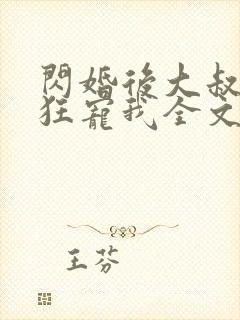 閃婚後大叔
狂寵我全文
王芬